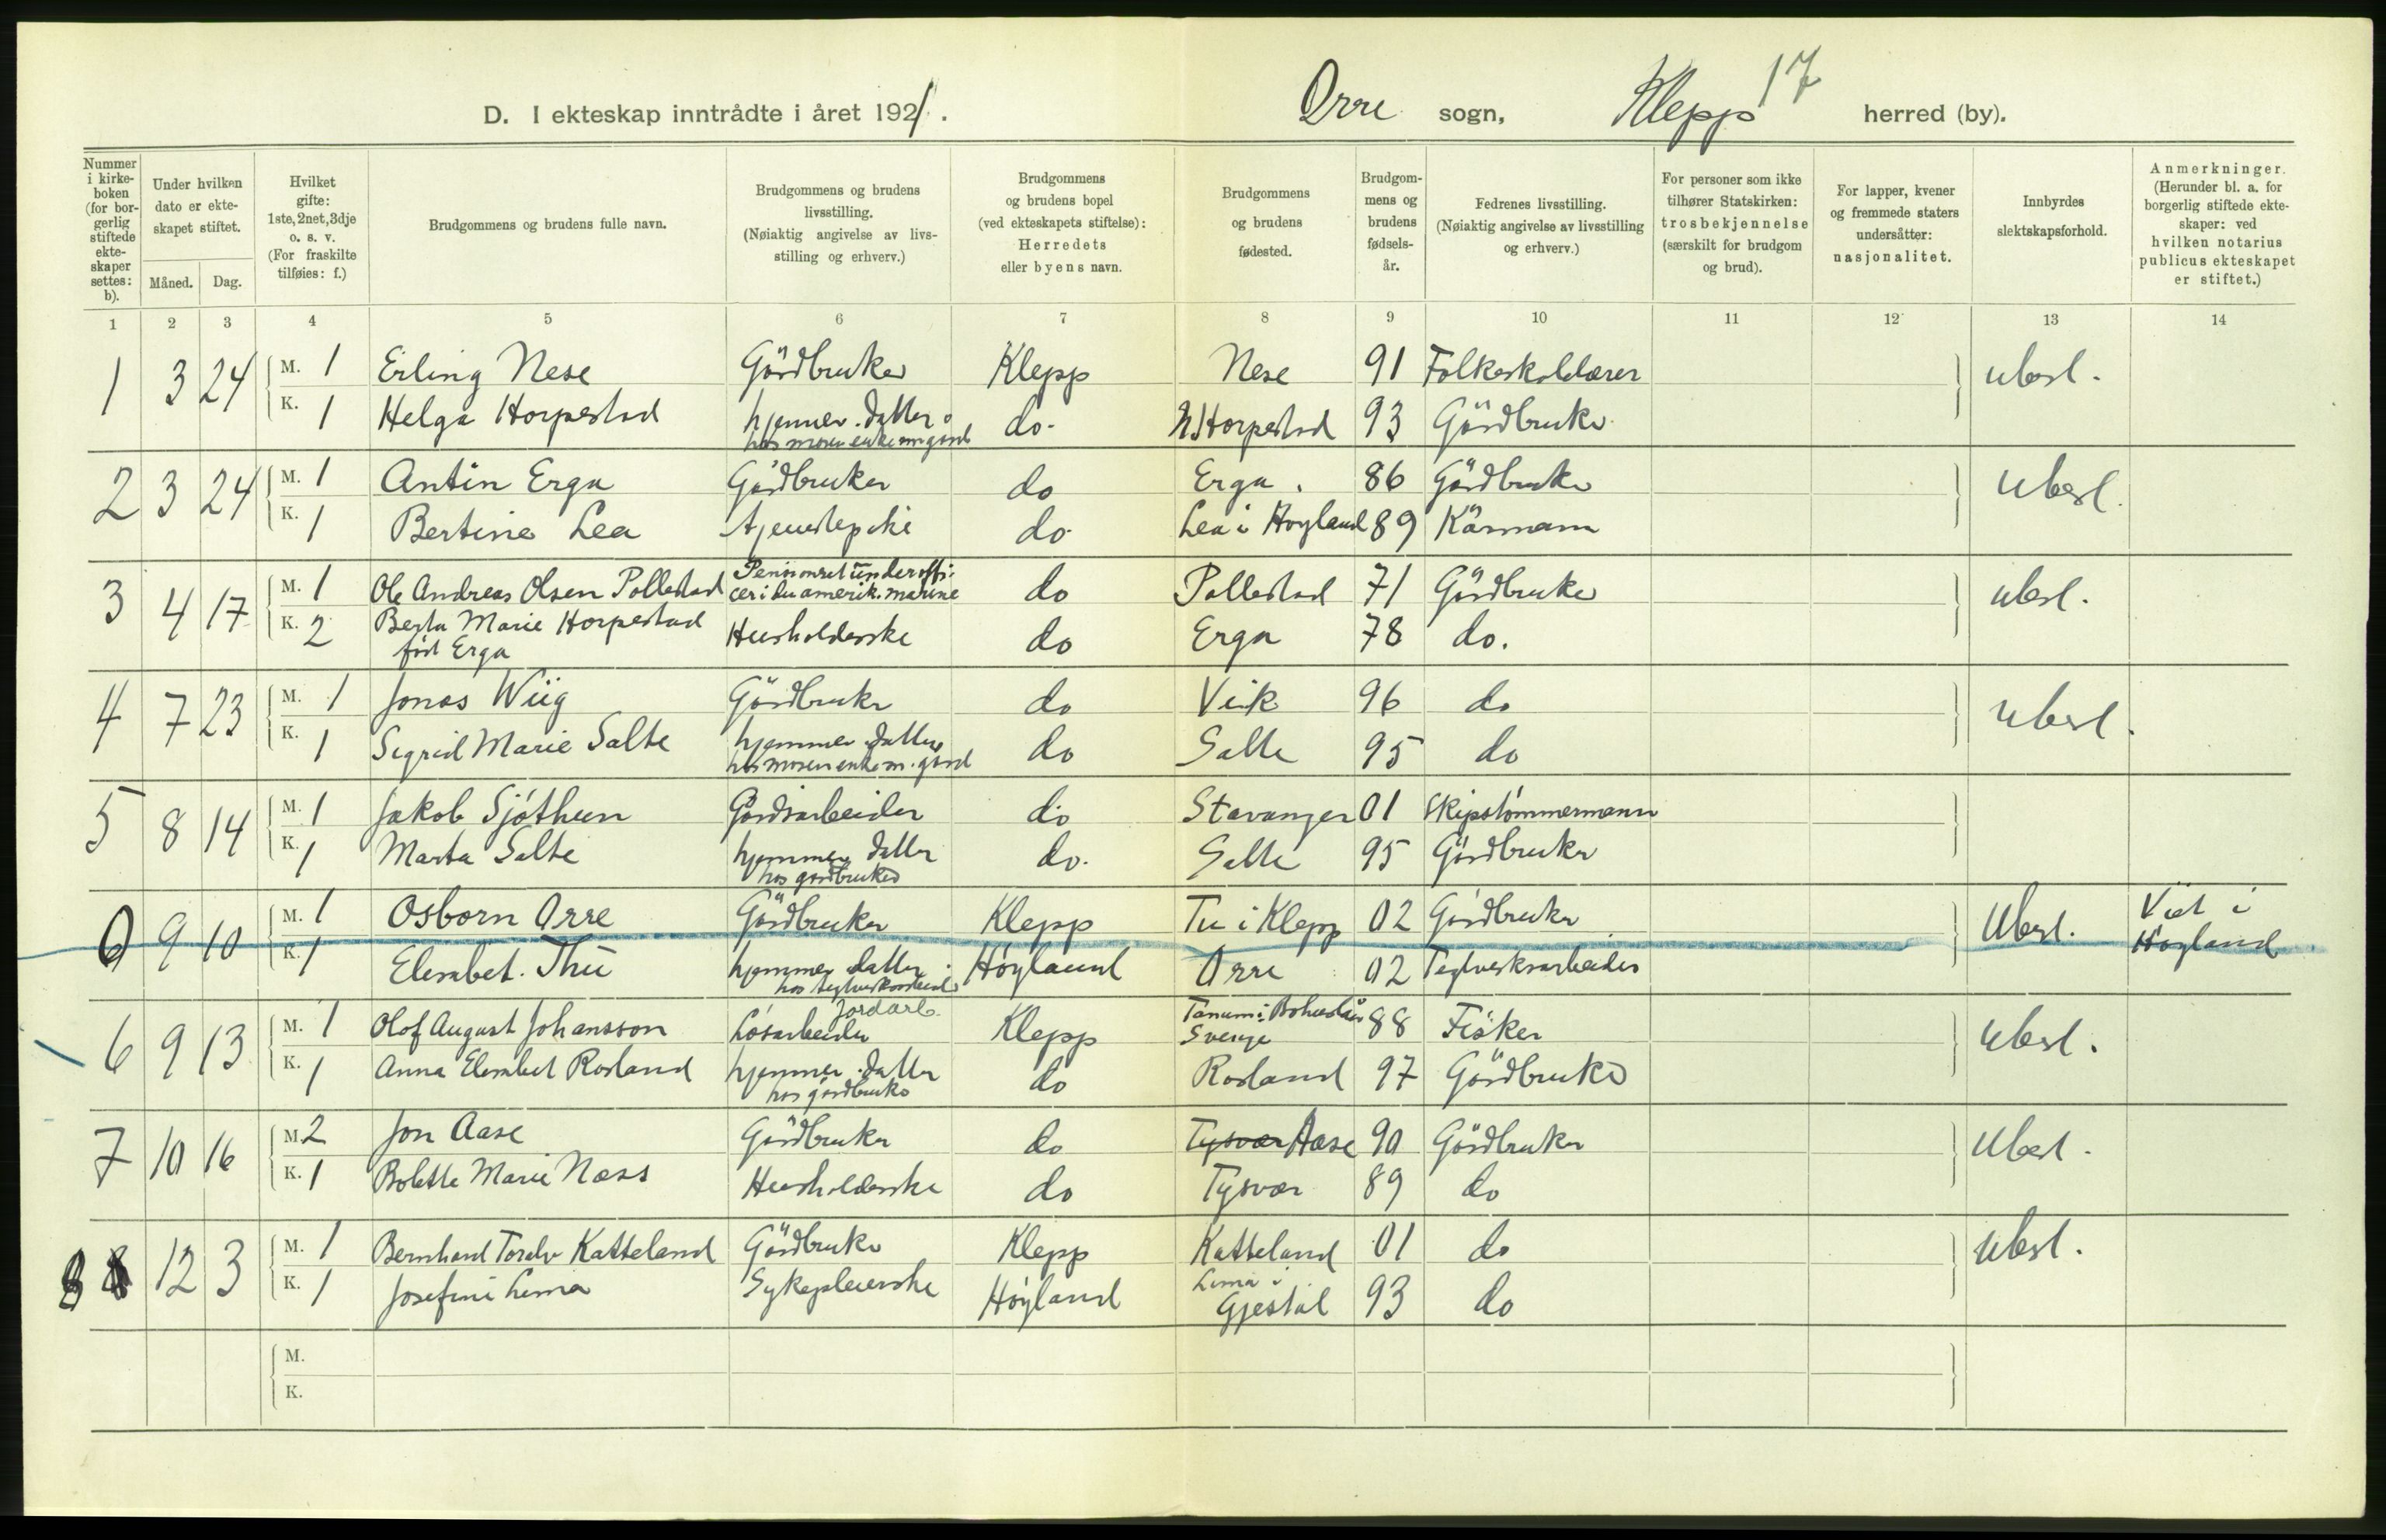 17
D. I ekteskap inntrådte i året 1921. Orre sogn, Klepp herred (by).
Nummer i kirkeboken (for borgerlig stiftede ekteskaper settes: b).
Under hvilken dato er ekteskapet stiftet.
Måned. Dag.
Hvilket gifte: 1ste, 2net, 3dje o. s. v. (For fraskilte tilføies: f.)
Brudgommens og brudens fulle navn.
Brudgommens og brudens livsstilling. (Nøiaktig angivelse av livsstilling og erhverv.)
Brudgommens og brudens bopel (ved ekteskapets stiftelse): Herredets eller byens navn.
Brudgommens og brudens fødested.
Brudgommens og brudens fødselsår.
Fedrenes livsstilling. (Nøiaktig angivelse av livsstilling og erhverv.)
For personer som ikke tilhører Statskirken: trosbekjennelse (særskilt for brudgom og brud).
For lapper, kvener og fremmede staters undersåtter: nasjonalitet.
Innbyrdes slektskapsforhold.
Anmerkninger. (Herunder bl. a. for borgerlig stiftede ekteskaper: ved hvilken notarius publicus ekteskapet er stiftet.)
1 2 3 4 5 6 7 8 9 10 11 12 13 14
1 3 24 M. 1 Erling Nese Gårdbruker Klepp Nese 91 Folkeskolelærer ubesl.
K. 1 Helga Horpestad hjemmev. datter hos moren enke m gård do. N Horpestad 93 Gårdbruker
2 3 24 M. 1 Antin Erga Gårdbruker do Erga. 86 Gårdbruker Ubesl.
K. 1 Bertine Lea tjenestepike do Lea i Høyland 89 Kårmann
3 4 17 M. 1 Ole Andreas Olsen Pollestad Pensionert underofficer i den amerik. marine do Pollestad 71 Gårdbruker ubesl.
K. 2 Berta Marie Horpestad født Erga Husholderske do Erga 78 do.
4 7 23 M. 1 Jonas Wiig Gårdbruker do Vik 96 do ubesl.
K. 1 Sigrid Marie Salte hjemmev datter hos moren enke m. gård do Salte 95 do
5 8 14 M. 1 Jakob Sjøthun Gårdsarbeider do Stavanger 01 Skipstømmermann
K. 1 Marta Salte hjemmev datter hos gårdbruker do. Salte 95 Gårdbruker
6 9 10 M. 1 Osborn Orre Gårdbruker Klepp Tu i Klepp 02 Gårdbruker Ubesl. Viet i Høyland
K. 1 Elisabet Thu hjemmev datter hos teglverksarbeider Høyland Orre 02 Teglverksarbeider
6 9 13 M. 1 Olof August Johansson Løsarbeider Jordarb. Klepp Tanum i Bohuslän Sverige 88 Fisker Ubesl.
K. 1 Anna Elisabet Rosland hjemmev. datter hos gårdbruker do Rosland 97 Gårdbruker
7 10 16 M. 2 Jon Aase Gårdbruker do Tysvær Aase 90 Gårdbruker Ubesl.
K. 1 Bolette Marie Næss Husholderske do Tysvær 89 do
8 12 3 M. 1 Bernhard Toralv Katteland Gårdbruker Klepp Katteland 01 do ubesl.
K. 1 Josefine Lima Sykepleierske Høyland Lima i Gjestal 93 do
M.
K.